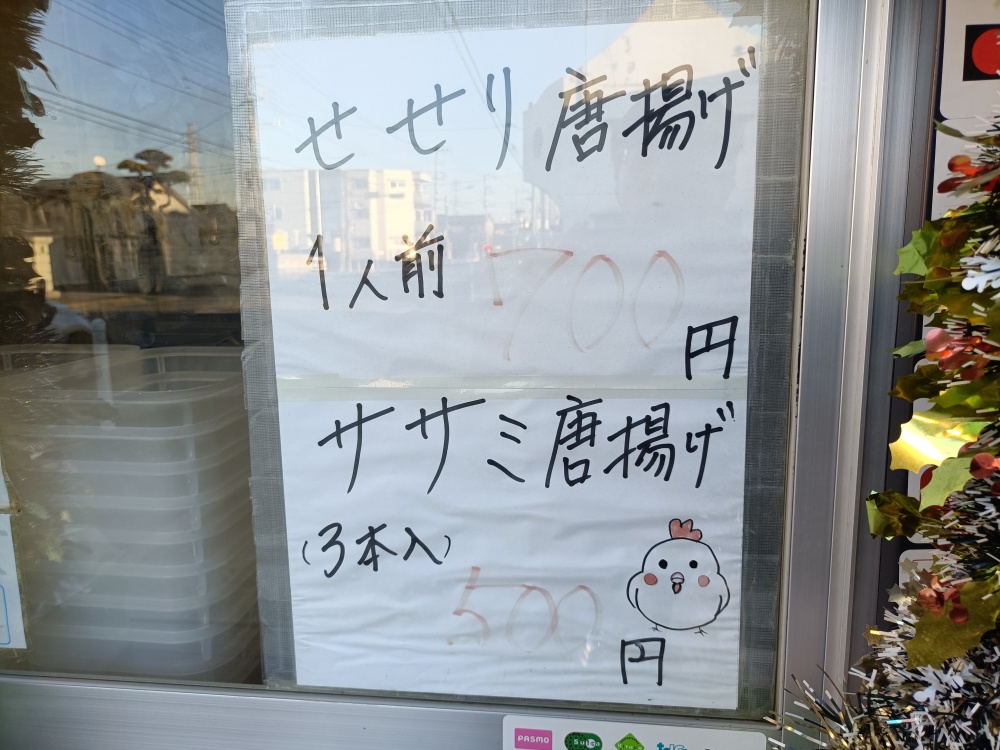 せせり唐揚げ
1人前 700
円
ササミ唐揚げ
(3本入)
500
円
PASMO
Suica